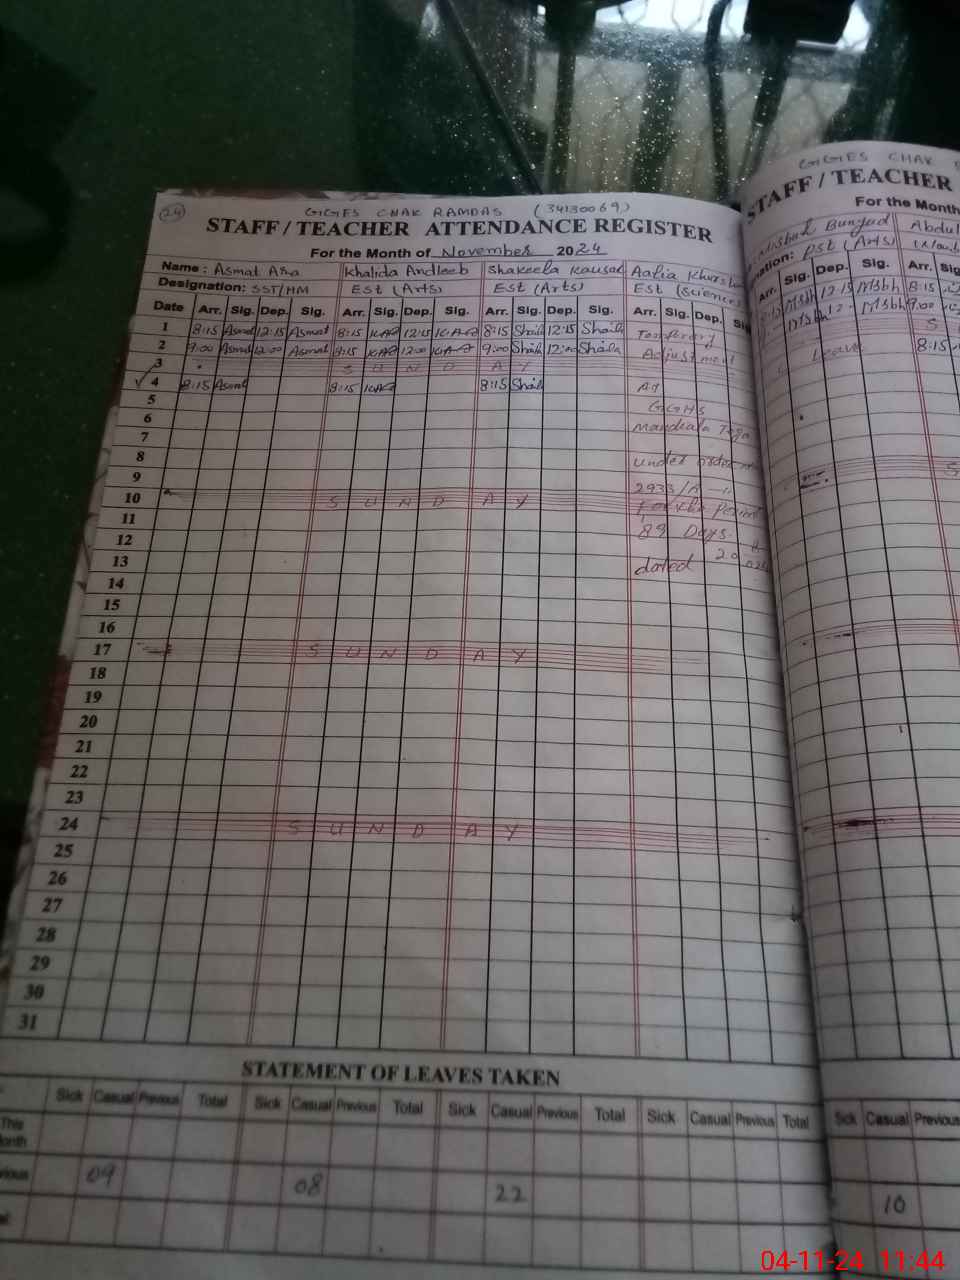 24
GGES CHAK RAMDAS (34130069)
STAFF / TEACHER ATTENDANCE REGISTER
For the Month of November 2024
Name : Asmat Ara Khalida Andleeb Shakeela Kausar Aalia
Designation: SST/HM Est (Arts) Est (Arts) Est (Science)
Date Arr. Sig. Dep. Sig. Arr. Sig. Dep. Sig. Arr. Sig. Dep. Sig. Arr. Sig. Dep.
1 8:15 Asmat 12:15 Asmat 8:15 KAZ 12:15 KAZ 8:15 Shaila 12:15 Shaila
2 9:00 Asmat 12:00 Asmat 8:15 KAZ 12:00 KAZ 9:00 Shaila 12:00 Shaila Adjustment
3 S U N D A Y
4 8:15 Asmat 8:15 KAZ 8:15 Shaila At
5 GGHS
6 Mandiala
7
8 under order
9 2933/A
10 S U N D A Y For the Period
11 89 Days.
12
13 dated
14
15
16
17 S U N D A Y
18
19
20
21
22
23
24 S U N D A Y
25
26
27
28
29
30
31
STATEMENT OF LEAVES TAKEN
Sick Casual Previous Total Sick Casual Previous Total Sick Casual Previous Total Sick Casual Previous Total
This
09 08 22
GGES CHAK
STAFF / TEACHER
For the Month
Misbah Bunyad Abdul
PST (Arts)
Arr. Sig. Dep. Sig. Arr.
8:15 Misbh 12:15 Misbh 8:15
Misbh 12 Misbh 9:00
S
Leave 8:15
S
Sick Casual Previous
10
04-11-24 11:44